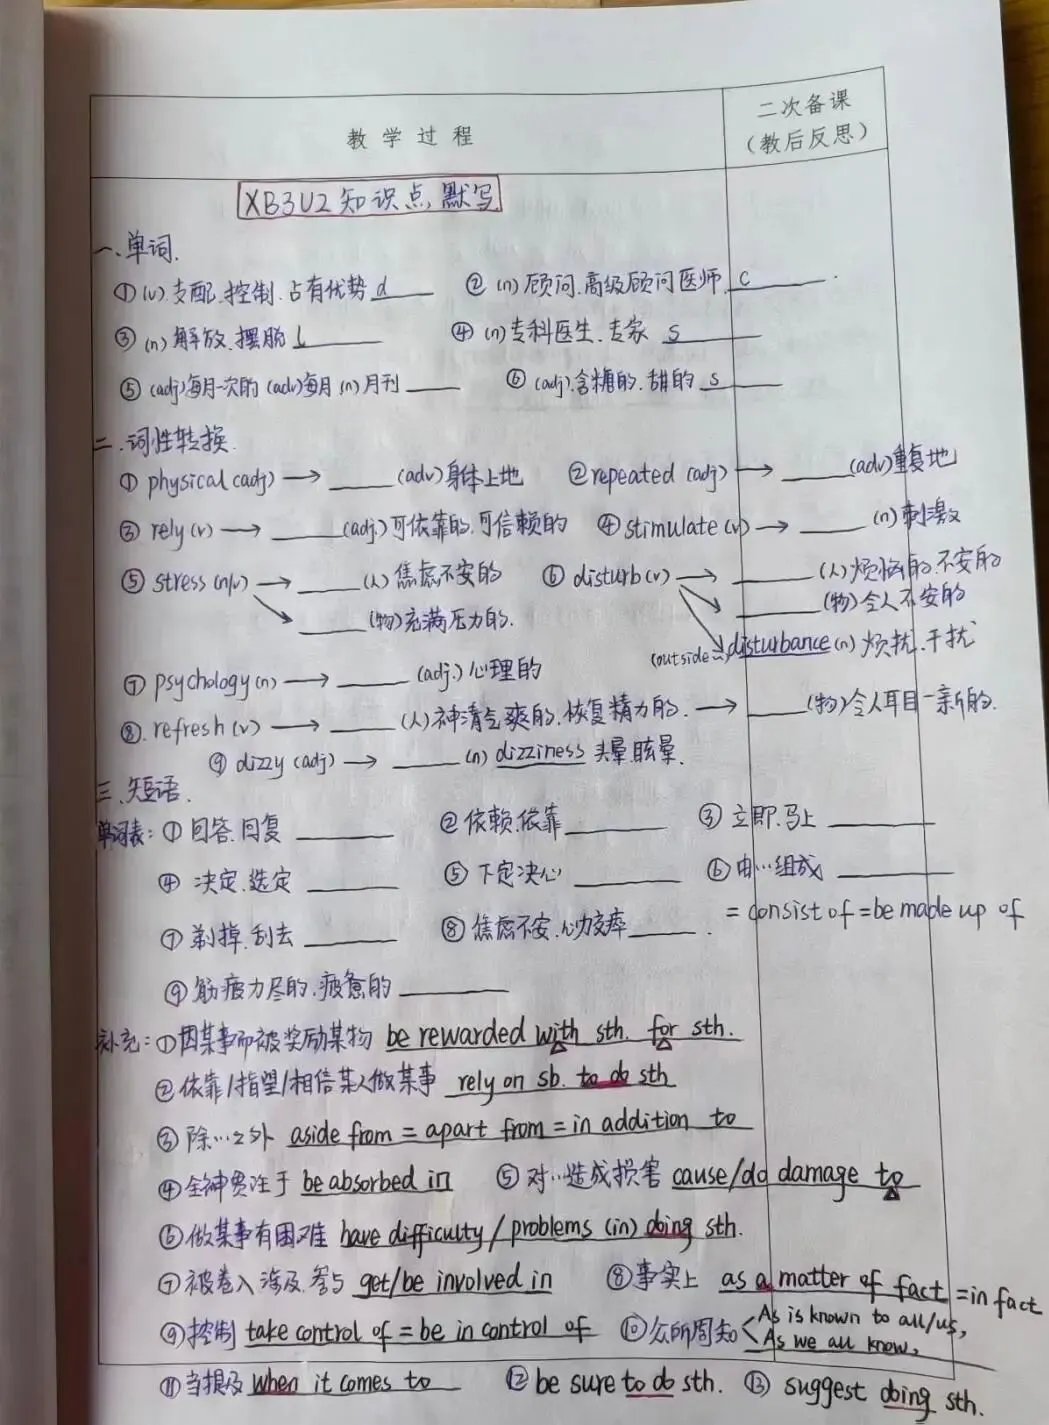 教 学 过 程
二次备课
（教后反思）
XB3U2 知识点 默写
一、单词.
① (v).支配.控制.占有优势 d____ ② (n)顾问.高级顾问医师 c____
③ (n)解放.摆脱 l____ ④ (n)专科医生.专家 s____
⑤ (adj)每月一次的 (adv)每月 (n)月刊 ____ ⑥ (adj).含糖的.甜的 s____
二.词性转换.
① physical (adj) → ____ (adv)身体上地 ② repeated (adj) → ____ (adv)重复地
③ rely (v) → ____ (adj.)可依靠的.可信赖的 ④ stimulate (v) → ____ (n)刺激
⑤ stress (n/v) → ____ (人)焦虑不安的 ⑥ disturb (v) → ____ (人)烦恼的.不安的
____ (物)充满压力的. ____ (物)令人不安的
(outside~) disturbance (n) 烦扰.干扰
⑦ psychology (n) → ____ (adj.)心理的
⑧. refresh (v) → ____ (人)神清气爽的.恢复精力的. → ____ (物)令人耳目一新的.
⑨ dizzy (adj) → ____ (n) dizziness 头晕.眩晕.
三、短语.
单词表：① 回答.回复 ____ ② 依赖.依靠 ____ ③ 立即.马上 ____
④ 决定.选定 ____ ⑤ 下定决心 ____ ⑥ 由…组成 ____
= consist of = be made up of
⑦ 剃掉.刮去 ____ ⑧ 焦虑不安.心力交瘁 ____.
⑨ 筋疲力尽的.疲惫的 ____
补充：① 因某事而被奖励某物 be rewarded with sth. for sth.
② 依靠/指望/相信某人做某事 rely on sb. to do sth
③ 除…之外 aside from = apart from = in addition to
④ 全神贯注于 be absorbed in ⑤ 对…造成损害 cause/do damage to
⑥ 做某事有困难 have difficulty / problems (in) doing sth.
⑦ 被卷入.涉及.参与 get/be involved in ⑧ 事实上 as a matter of fact = in fact
⑨ 控制 take control of = be in control of ⑩ 众所周知 < As is known to all/us,
As we all know,
⑪ 当提及 when it comes to ⑫ be sure to do sth. ⑬ suggest doing sth.